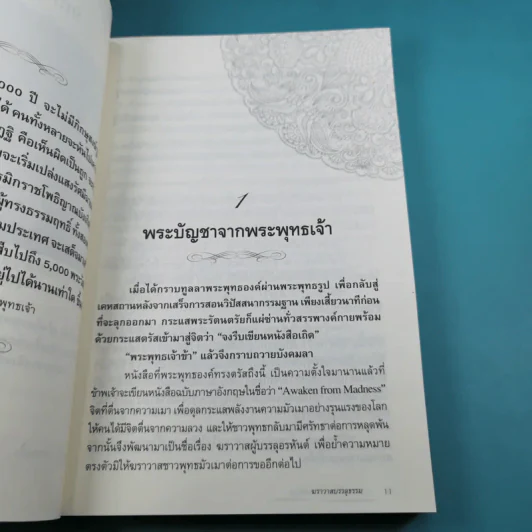 000 ปี จะไม่มี
ได้ คนทั้งหลายจะหันไป
คือเห็นผิดเป็นถูก
จะเริ่มเปล่งแสงรัศมี
ผู้ทรงธรรมฤทธิ์
มประเทศ จะเสด็จมา
สืบไปถึง 5,000 พระ
อยู่ไปได้นานเท่าใด
พุทธเจ้า
1
พระบัญชาจากพระพุทธเจ้า
เมื่อได้กราบทูลลาพระพุทธองค์ผ่านพระพุทธรูป เพื่อกลับสู่
เคหสถานหลังจากเสร็จการสอนวิปัสสนากรรมฐาน เพียงเสี้ยวนาทีก่อน
ที่จะลุกออกมา กระแสพระรัตนตรัยก็แผ่ซ่านทั่วสรรพางค์กายพร้อม
ด้วยกระแสตรัสเข้ามาสู่จิตว่า “จงรีบเขียนหนังสือเถิด”
“พระพุทธเจ้าข้า” แล้วจึงกราบถวายบังคมลา
หนังสือที่พระพุทธองค์ทรงตรัสถึงนี้ เป็นความตั้งใจมานานแล้วที่
ข้าพเจ้าจะเขียนหนังสือฉบับภาษาอังกฤษในชื่อว่า “Awaken from Madness”
จิตที่ตื่นจากความเมา เพื่อดูลกระแสพลังงานความมัวเมาอย่างรุนแรงของโลก
ให้คนได้มีจิตตื่นจากความลวง และให้ชาวพุทธกลับมามีศรัทธาต่อการหลุดพ้น
จากนั้นจึงพัฒนามาเป็นชื่อเรื่อง ฆราวาสผู้บรรลุอรหันต์ เพื่อย้ำความหมาย
ตรงตัวมิให้ฆราวาสชาวพุทธมัวเมาต่อการขออีกต่อไป
ฆราวาสบรรลุธรรม 13